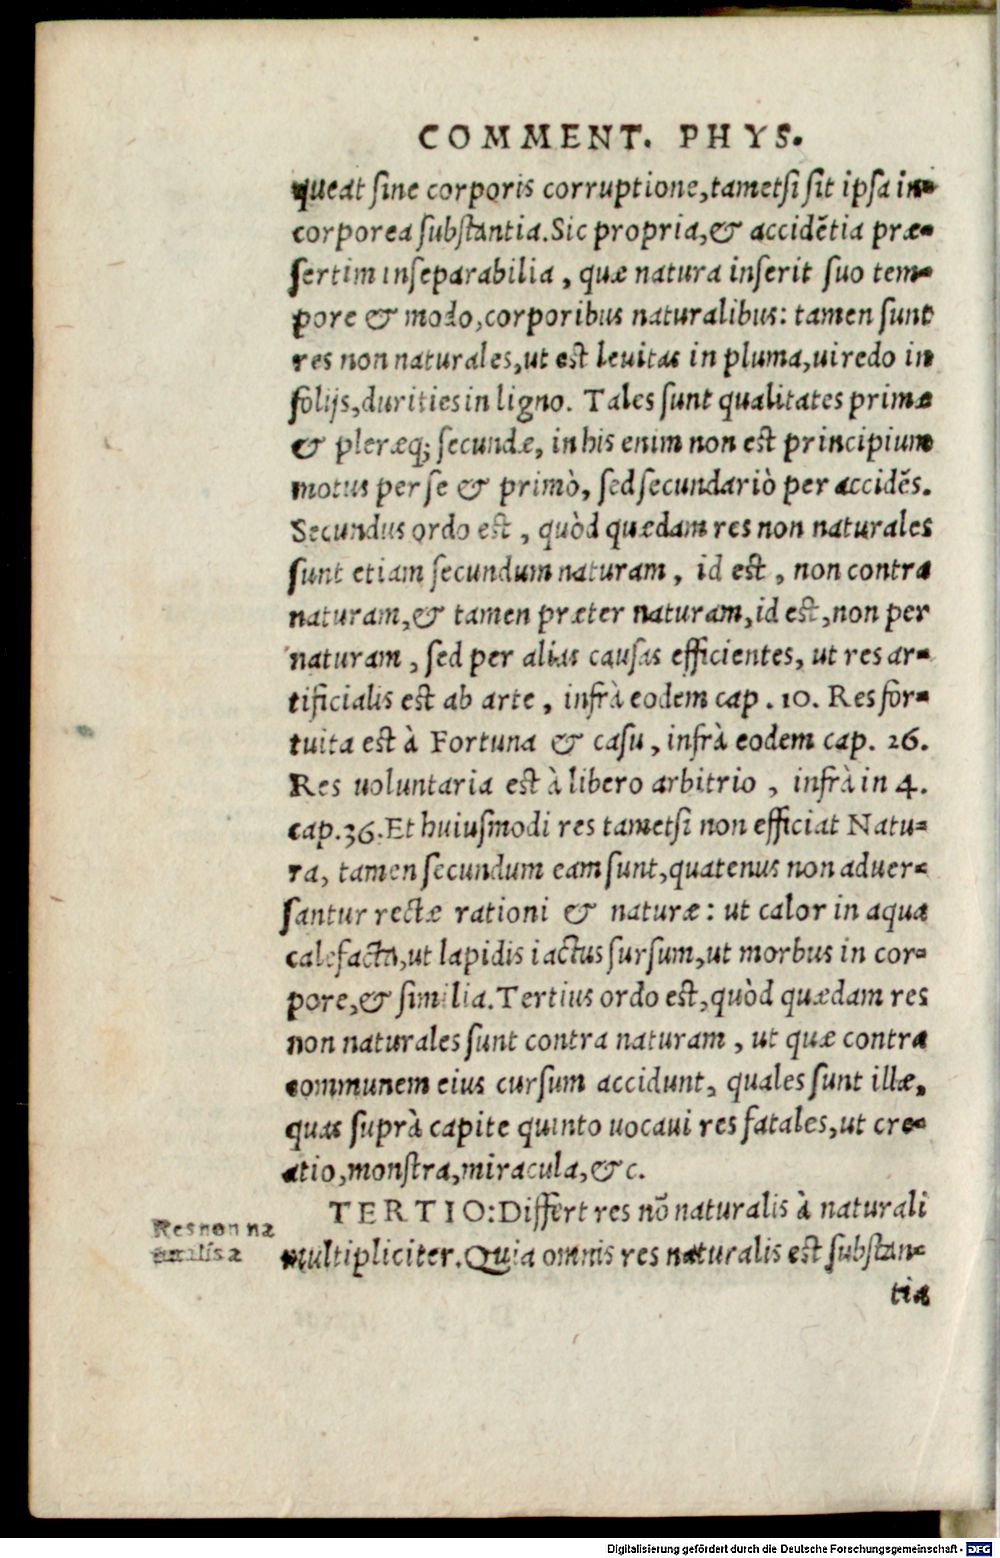 COMMENT. PHYS.
queat sine corporis corruptione, tametsi sit ipsa in-
corporea substantia. Sic propria, & accidētia præ-
sertim inseparabilia, quæ natura inserit suo tem-
pore & modo, corporibus naturalibus: tamen sunt
res non naturales, ut est levitas in pluma, uiredo in
folijs, durities in ligno. Tales sunt qualitates primæ
& pleræq; secundæ, in his enim non est principium
motus per se & primò, sed secundariò per accidēs.
Secundus ordo est, quòd quædam res non naturales
sunt etiam secundum naturam, id est, non contra
naturam, & tamen præter naturam, id est, non per
naturam, sed per alias causas efficientes, ut res ar-
tificialis est ab arte, infrà eodem cap. 10. Res for-
tuita est à Fortuna & casu, infrà eodem cap. 26.
Res uoluntaria est à libero arbitrio, infrà in 4.
cap. 36. Et huiusmodi res tametsi non efficiat Natu-
ra, tamen secundum eam sunt, quatenus non aduer-
santur rectæ rationi & naturæ: ut calor in aqua
calefacta, ut lapidis iactus sursum, ut morbus in cor-
pore, & similia. Tertius ordo est, quòd quædam res
non naturales sunt contra naturam, ut quæ contra
communem eius cursum accidunt, quales sunt illæ,
quas suprà capite quinto uocaui res fatales, ut cre-
atio, monstra, miracula, &c.
TERTIO: Differt res nō naturalis à naturali
Res non na
turalis a
multipliciter. Quia omnis res naturalis est substan-
tia
Digitalisierung gefördert durch die Deutsche Forschungsgemeinschaft - DFG